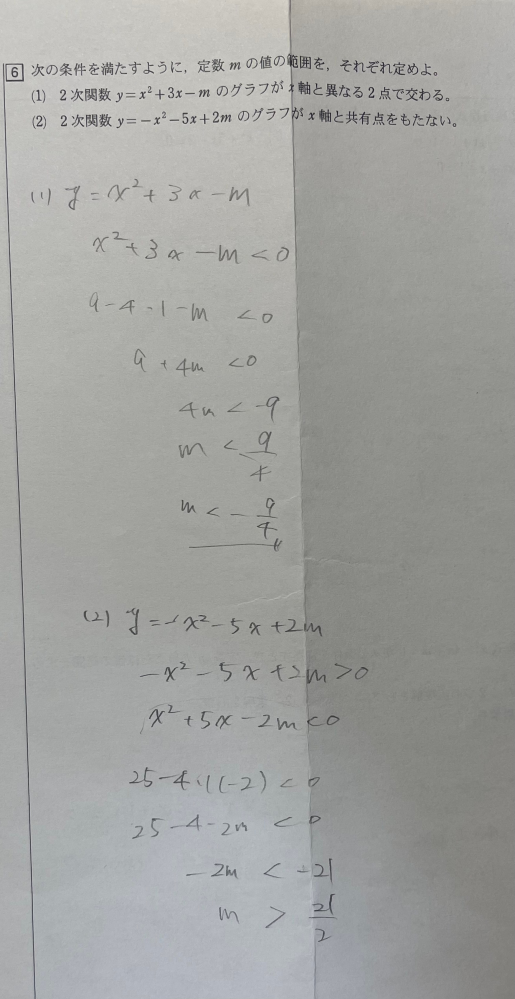 6 次の条件を満たすように，定数 m の値の範囲を，それぞれ定めよ。
(1) 2次関数 y=x²+3x−m のグラフが x 軸と異なる2点で交わる。
(2) 2次関数 y=−x²−5x+2m のグラフが x 軸と共有点をもたない。
(1) y=x²+3x−m
x²+3x−m<0
9−4・1−m <0
9+4m <0
4m < −9
m < 9/4
m < − 9/4
(2) y=−x²−5x+2m
−x²−5x+2m>0
x²+5x−2m<0
25−4・1(−2) < 0
25−4−2m < 0
−2m < −21
m > 21/2